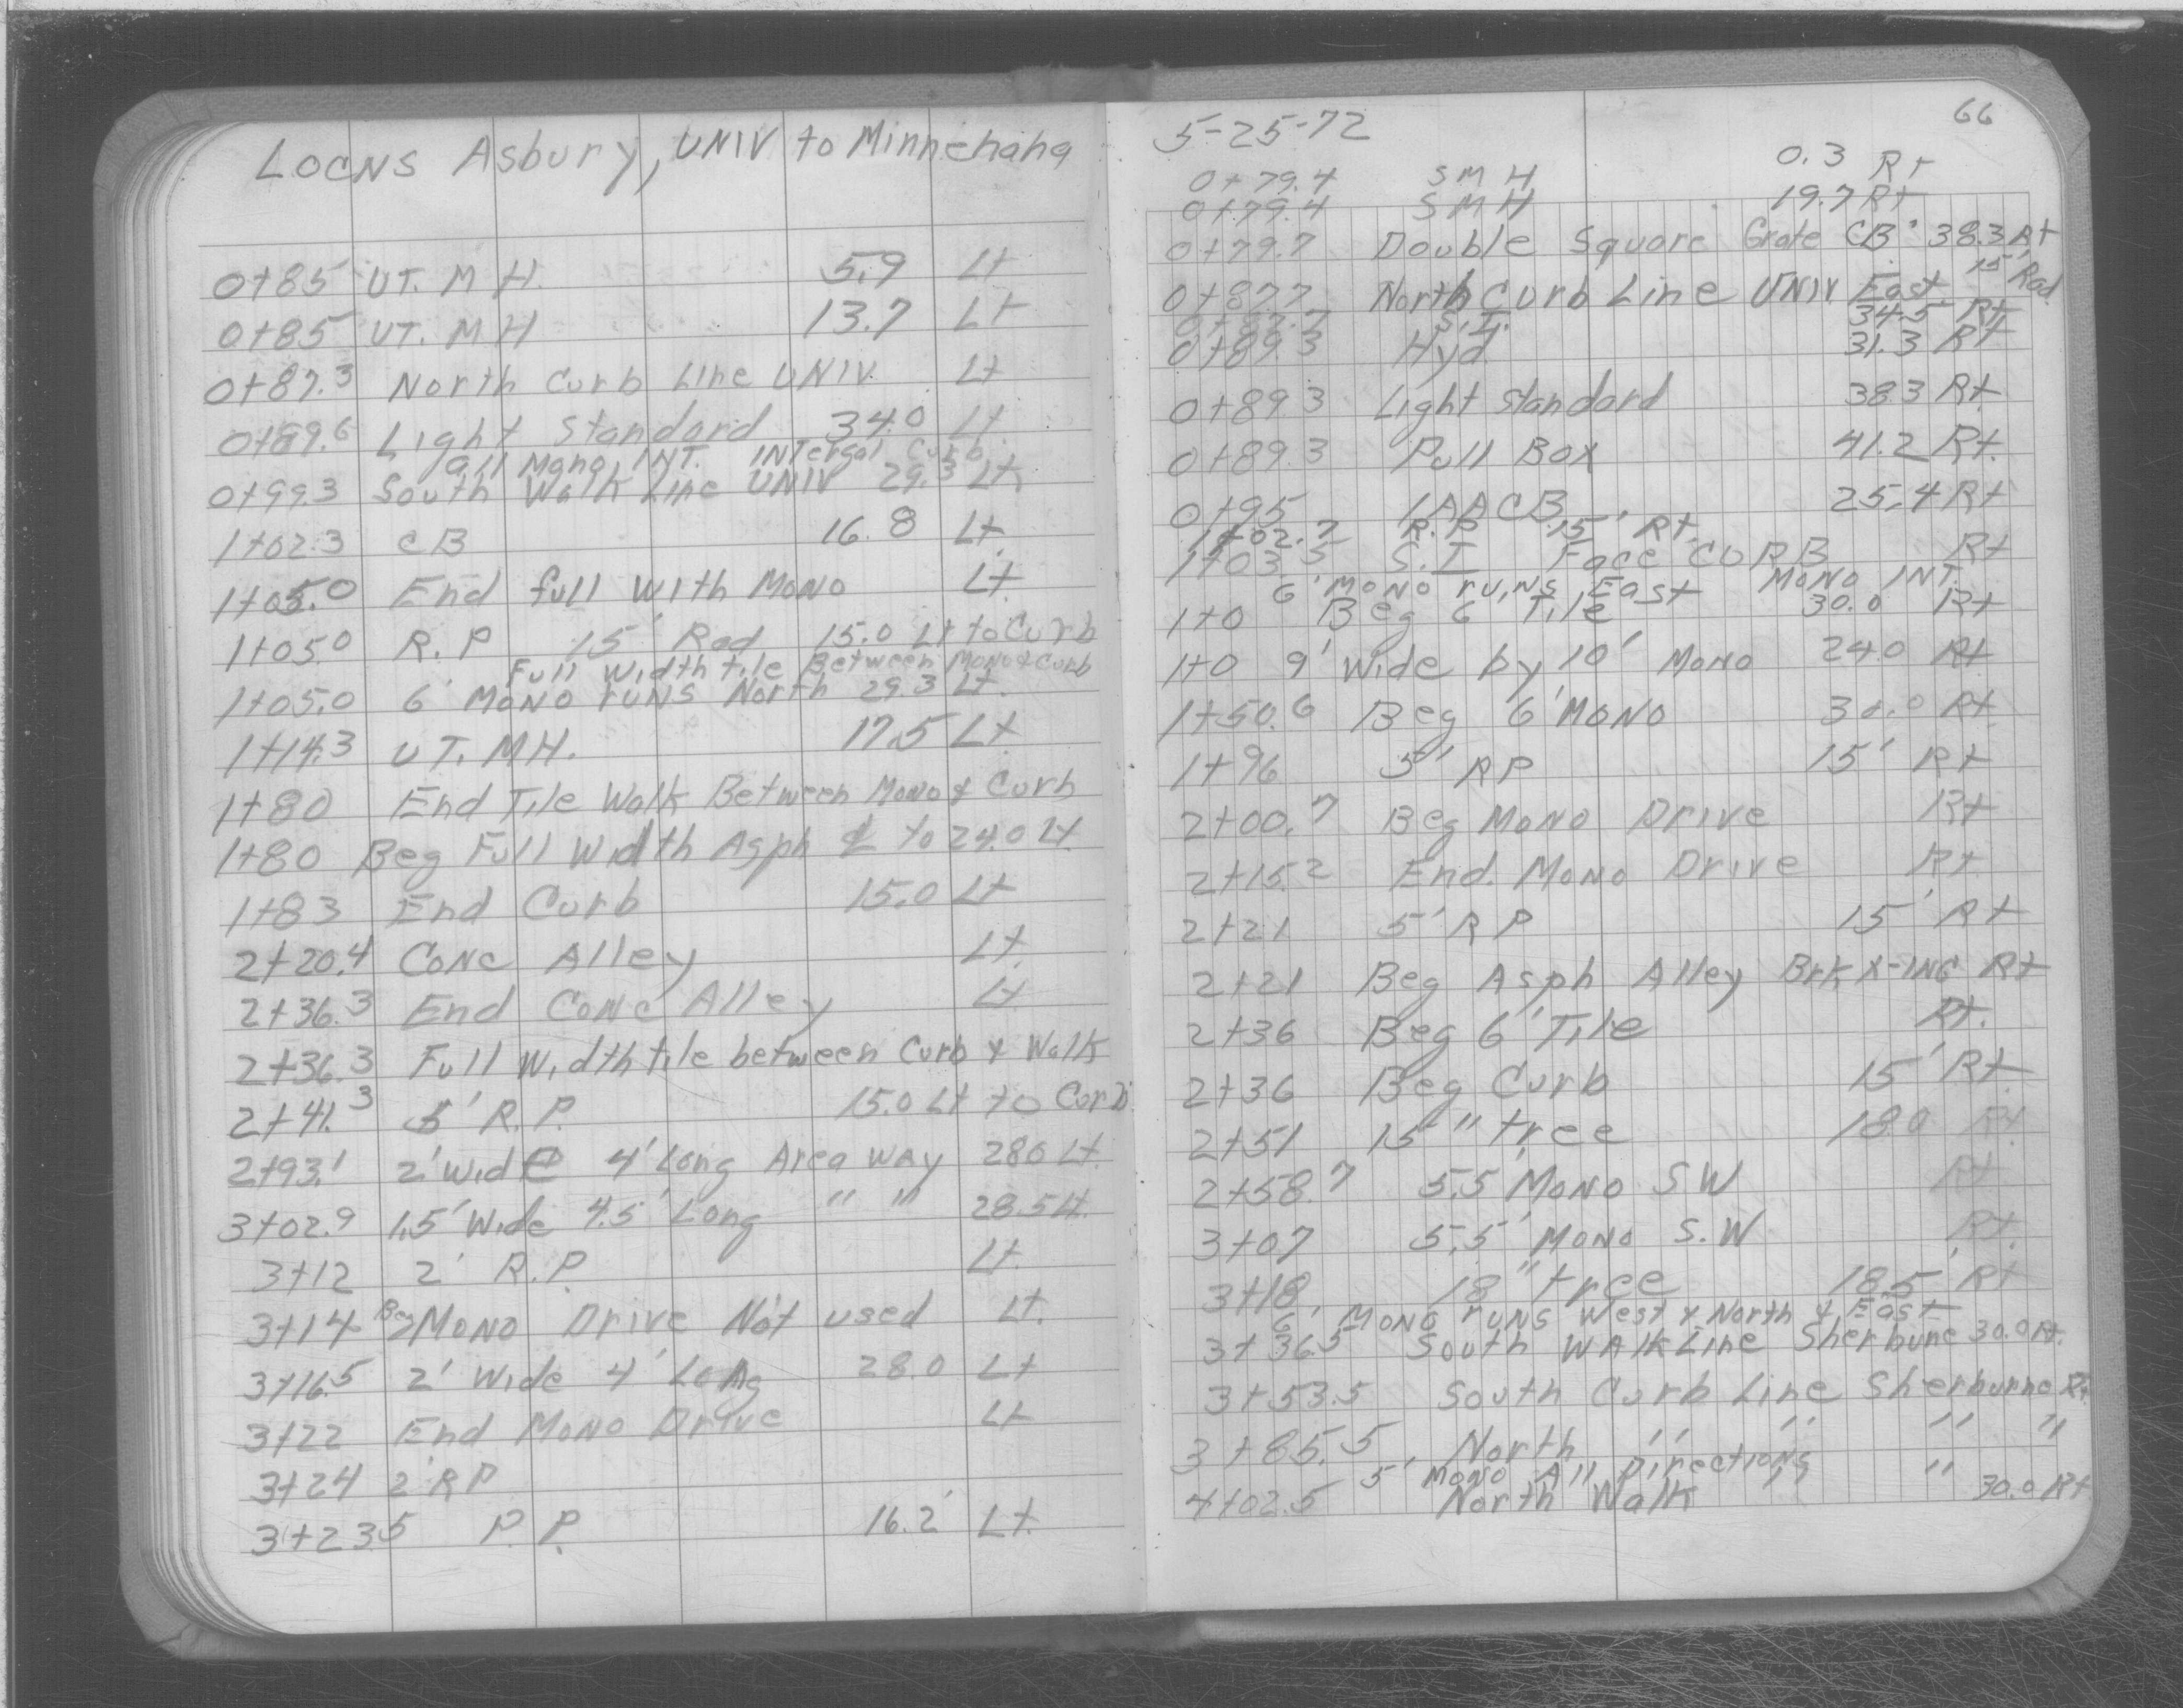 LOCNS Asbury, UNIV to Minnehaha
0+85 UT. M H. 5.9 Lt
0+85 UT. M H 13.7 Lt
0+87.3 North Curb Line UNIV. Lt
0+89.6 Light Standard 34.0 Lt.
all Mono INT. INTergal Curb
0+99.3 South Walk Line UNIV 29.3 Lt
1+02.3 CB 16.8 Lt.
1+05.0 End full With Mono Lt.
1+05.0 R.P 15' Rad 15.0 Lt to Curb
Full Width tile Between Mono & Curb
1+05.0 6' Mono runs North 29.3 Lt.
1+14.3 UT. MH. 17.5 Lt.
1+80 End Tile Walk Between Mono & Curb
1+80 Beg Full Width Asph ℄ to 24.0 Lt.
1+83 End Curb 15.0 Lt
2+20.4 Conc Alley Lt.
2+36.3 End Conc Alley Lt.
2+36.3 Full Width tile between Curb & Walk
2+41.3 5' R.P. 15.0 Lt to Curb
2+93.1 2' Wide 4' Long Area WAY 28.0 Lt.
3+02.9 1.5' Wide 4.5' Long " " 28.5 Lt.
3+12 2' R.P. Lt.
3+14 Beg Mono Drive Not used Lt.
3+16.5 2' Wide 4' Long 28.0 Lt
3+22 End Mono Drive Lt
3+24 2' RP
3+23.5 P.P. 16.2' Lt.
66
5-25-72
0+79.4 S M H 0.3 Rt
0+79.4 S M H 19.7 Rt
0+79.7 Double Square Grate CB 38.3 Rt
0+87.7 North Curb Line UNIV East 15' Rad.
0+87.7 S.I. 34.5 Rt
0+89.3 Hyd 31.3 Rt
0+89.3 Light Standard 38.3 Rt.
0+89.3 Pull Box 41.2 Rt.
0+95 1AACB 25.4 Rt
1+02.7 R.P 15' Rt.
1+03.5 S.I Face CURB Rt
6' Mono runs East Mono INT.
1+0 Beg 6' Tile 30.0 Rt
1+0 9' Wide by 10' Mono 24.0 Rt
1+50.6 Beg 6' Mono 30.0 Rt
1+96 5' RP 15' Rt
2+00.7 Beg Mono Drive Rt
2+15.2 End. Mono Drive Rt
2+21 5' R P 15' Rt
2+21 Beg Asph Alley Brk X-ING Rt
2+36 Beg 6' Tile Rt.
2+36 Beg Curb 15' Rt.
2+51 15" tree 18.0 Rt.
2+58.7 5.5' Mono S W Rt
3+07 5.5' Mono S.W Rt.
3+18 18" tree 18.5' Rt
6' Mono runs West & North & East
3+36.5 South WALK Line Sherbune 30.0 Rt.
3+53.5 South Curb Line Sherburne Rt.
3+85.5 North " " " "
5' Mono All Directions
4+02.5 North Walk " " 30.0 Rt